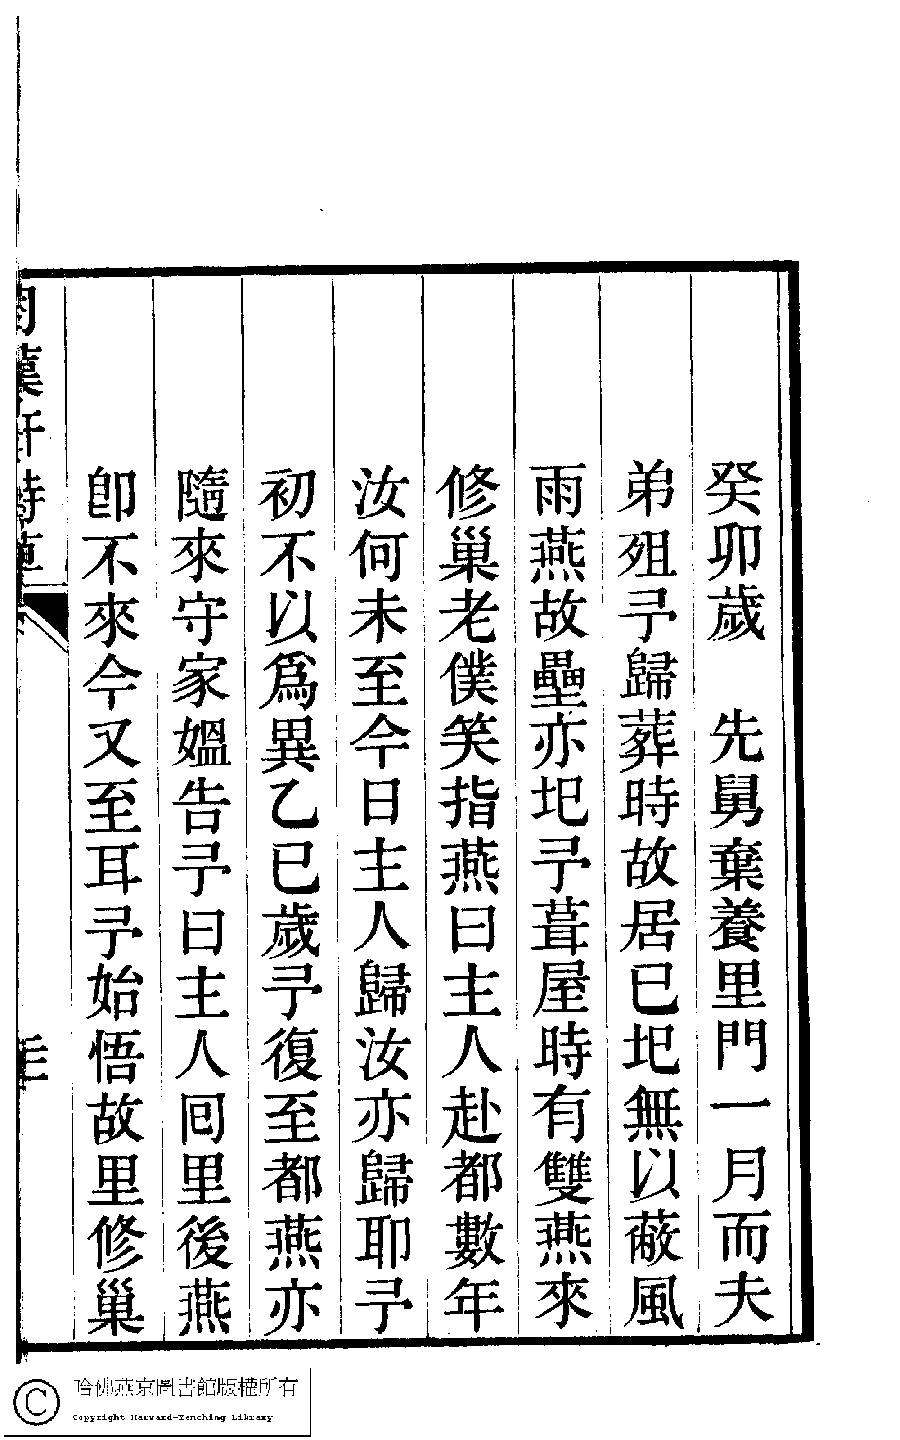 癸卯歲　先舅棄養里門一月而夫
弟殂予歸葬時故居已圯無以蔽風
雨燕故壘亦圯予葺屋時有雙燕來
修巢老僕笑指燕曰主人赴都數年
汝何未至今日主人歸汝亦歸耶予
初不以爲異乙巳歲予復至都燕亦
隨來守家媼告予曰主人回里後燕
卽不來今又至耳予始悟故里修巢
哈佛燕京圖書館版權所有
Copyright Harvard-Yenching Library